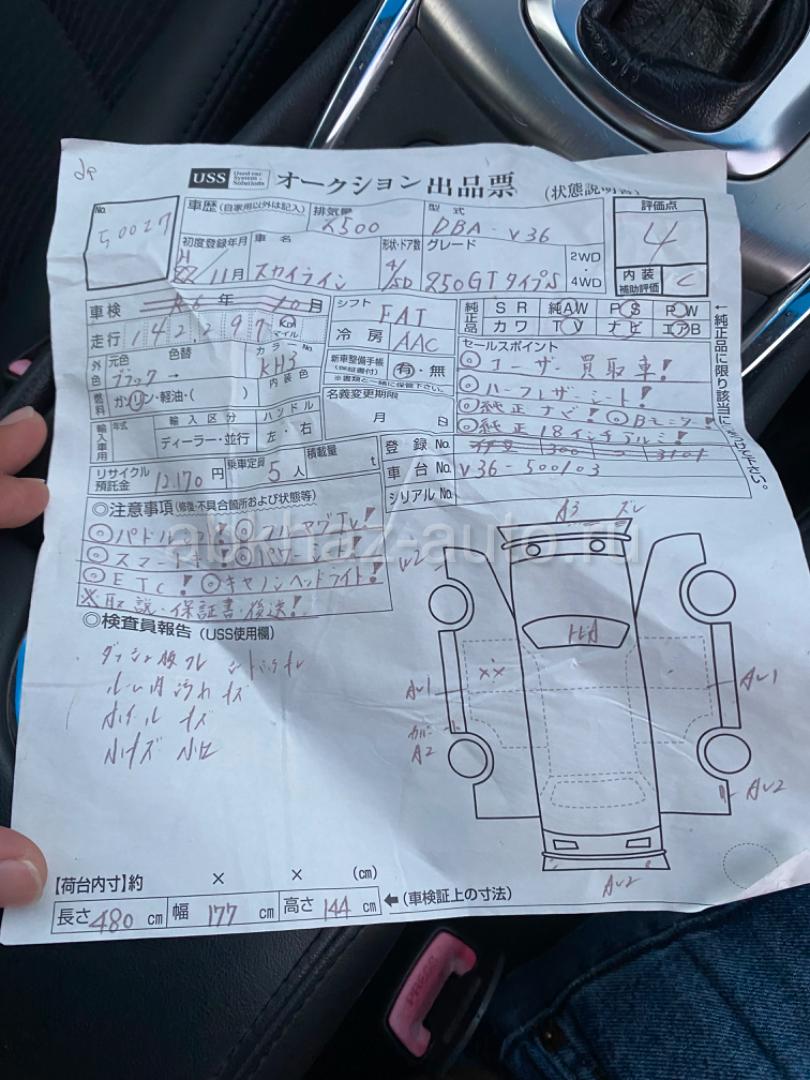 USS Used car System Solutions オークション 出品票
No. 50027
車歴 (自家用以外は記入) 排気量 2500 型式 DBA-V36 評価点 4
初度登録年月 H22/11月 車名 スカイライン 形状・ドア数 4/SD グレード 250GTタイプS 2WD・4WD 内装補助評価 C
車検 年 10月 シフト FAT 純正品 SR 純AW PS PW
走行 142,297 Km マイル 冷房 AAC カワ TV ナビ エアB
外色 元色 ブラック 色替 → カラーNo KH3 内装色
新車整備手帳 (保証書付) 有・無
※書類と一緒に保管下さい。
セールスポイント
◎ユーザー買取車!
◎ハーフレザーシート!
◎純正ナビ! ◎Bモニター!
◎純正18インチアルミ!
←純正品に限り該当に
燃料 ガソリン・軽油・( )
名義変更期限 月 日
輸入車用 年式 輸入区分 ディーラー・並行 ハンドル 左・右
登録No. 300 3101
リサイクル預託金 12,170円 乗車定員 5人 積載量 t
車台No. V36-500103
シリアルNo.
◎注意事項 (修復・不具合箇所および状態等)
◎パドル
◎スマート
◎ETC! ◎キセノンヘッドライト!
※取説・保証書・後送!
◎検査員報告 (USS使用欄)
ルーム内汚れ キズ
ホイール キズ
小キズ 小凹
A3 ズレ
W2
XX
AU1
AU1
カバー
A2
AU2
AU2
【荷台内寸】約 × × (cm)
長さ 480 cm 幅 177 cm 高さ 144 cm ← (車検証上の寸法)
abkhaz-auto.ru
PRESS